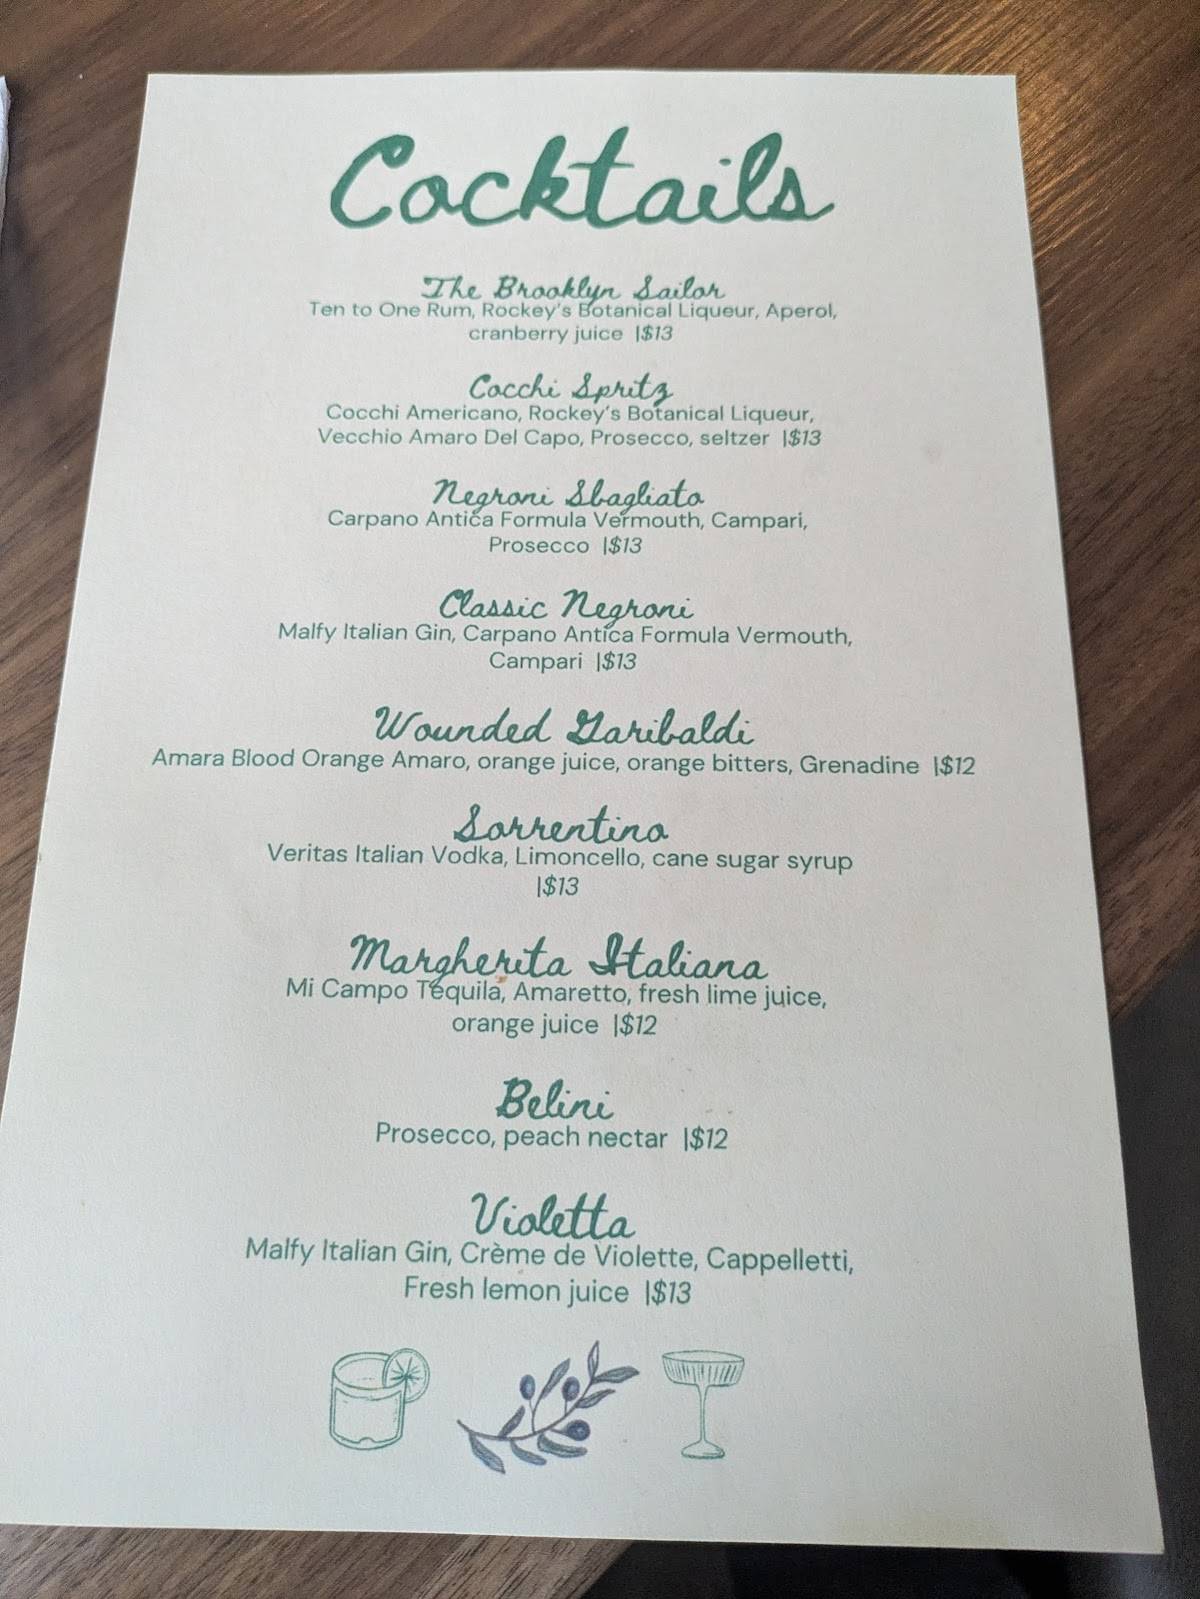 Cocktails
The Brooklyn Sailor
Ten to One Rum, Rockey's Botanical Liqueur, Aperol,
cranberry juice |$13
Cocchi Spritz
Cocchi Americano, Rockey's Botanical Liqueur,
Vecchio Amaro Del Capo, Prosecco, seltzer |$13
Negroni Sbagliato
Carpano Antica Formula Vermouth, Campari,
Prosecco |$13
Classic Negroni
Malfy Italian Gin, Carpano Antica Formula Vermouth,
Campari |$13
Wounded Garibaldi
Amara Blood Orange Amaro, orange juice, orange bitters, Grenadine |$12
Sorrentino
Veritas Italian Vodka, Limoncello, cane sugar syrup
|$13
Margherita Italiana
Mi Campo Tequila, Amaretto, fresh lime juice,
orange juice |$12
Belini
Prosecco, peach nectar |$12
Violetta
Malfy Italian Gin, Crème de Violette, Cappelletti,
Fresh lemon juice |$13